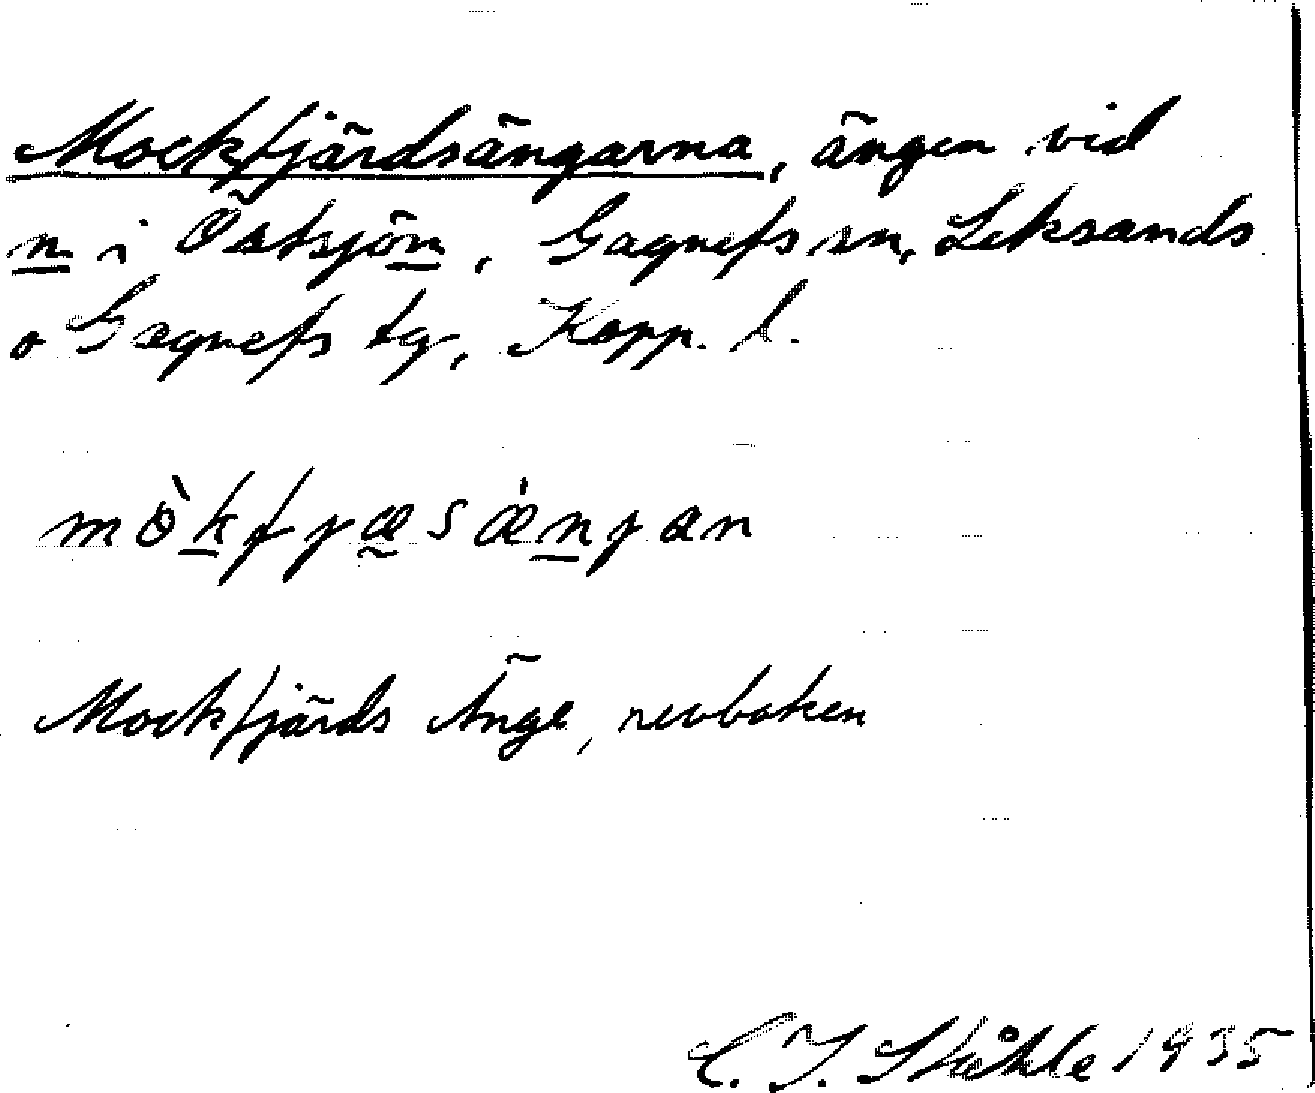 Mockfjärdsängarna, ängen vid
n i Östsjön, Gagnefs sn, Leksands
o Gagnefs tg, Kopp. l.
mòkfjæsæ̀njan
Mockfjärds Änge, revboken
C. I. Ståhle 1935